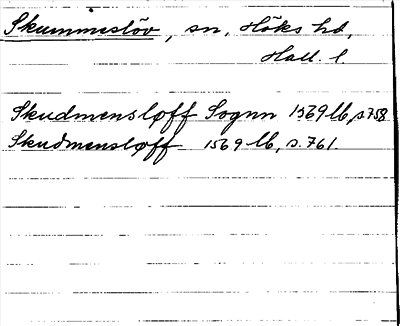 Skummeslöv, sn, Höks hd,
Hall. l.
Skudmensløff Sognn 1569 lb, s. 758
Skudmensløff 1569 lb, s. 761.